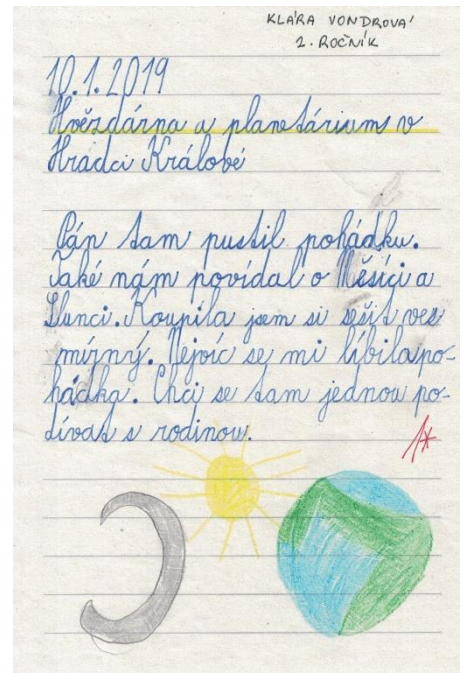 KLÁRA VONDROVÁ
2. ROČNÍK
10.1.2019
Hvězdárna a planetárium v
Hradci Králové
Pán tam pustil pohádku.
Také nám povídal o Měsíci a
Slunci. Koupila jsem si sešit ves
mírný. Nejvíc se mi líbila po-
hádka. Chci se tam jednou po-
dívat s rodinou.
1*